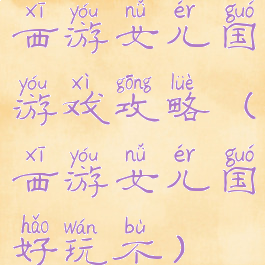 xī yóu nǚ ér guó
西游女儿国
yóu xì gōng lüè
游戏攻略（
xī yóu nǚ ér guó
西游女儿国
hǎo wán bù
好玩不）